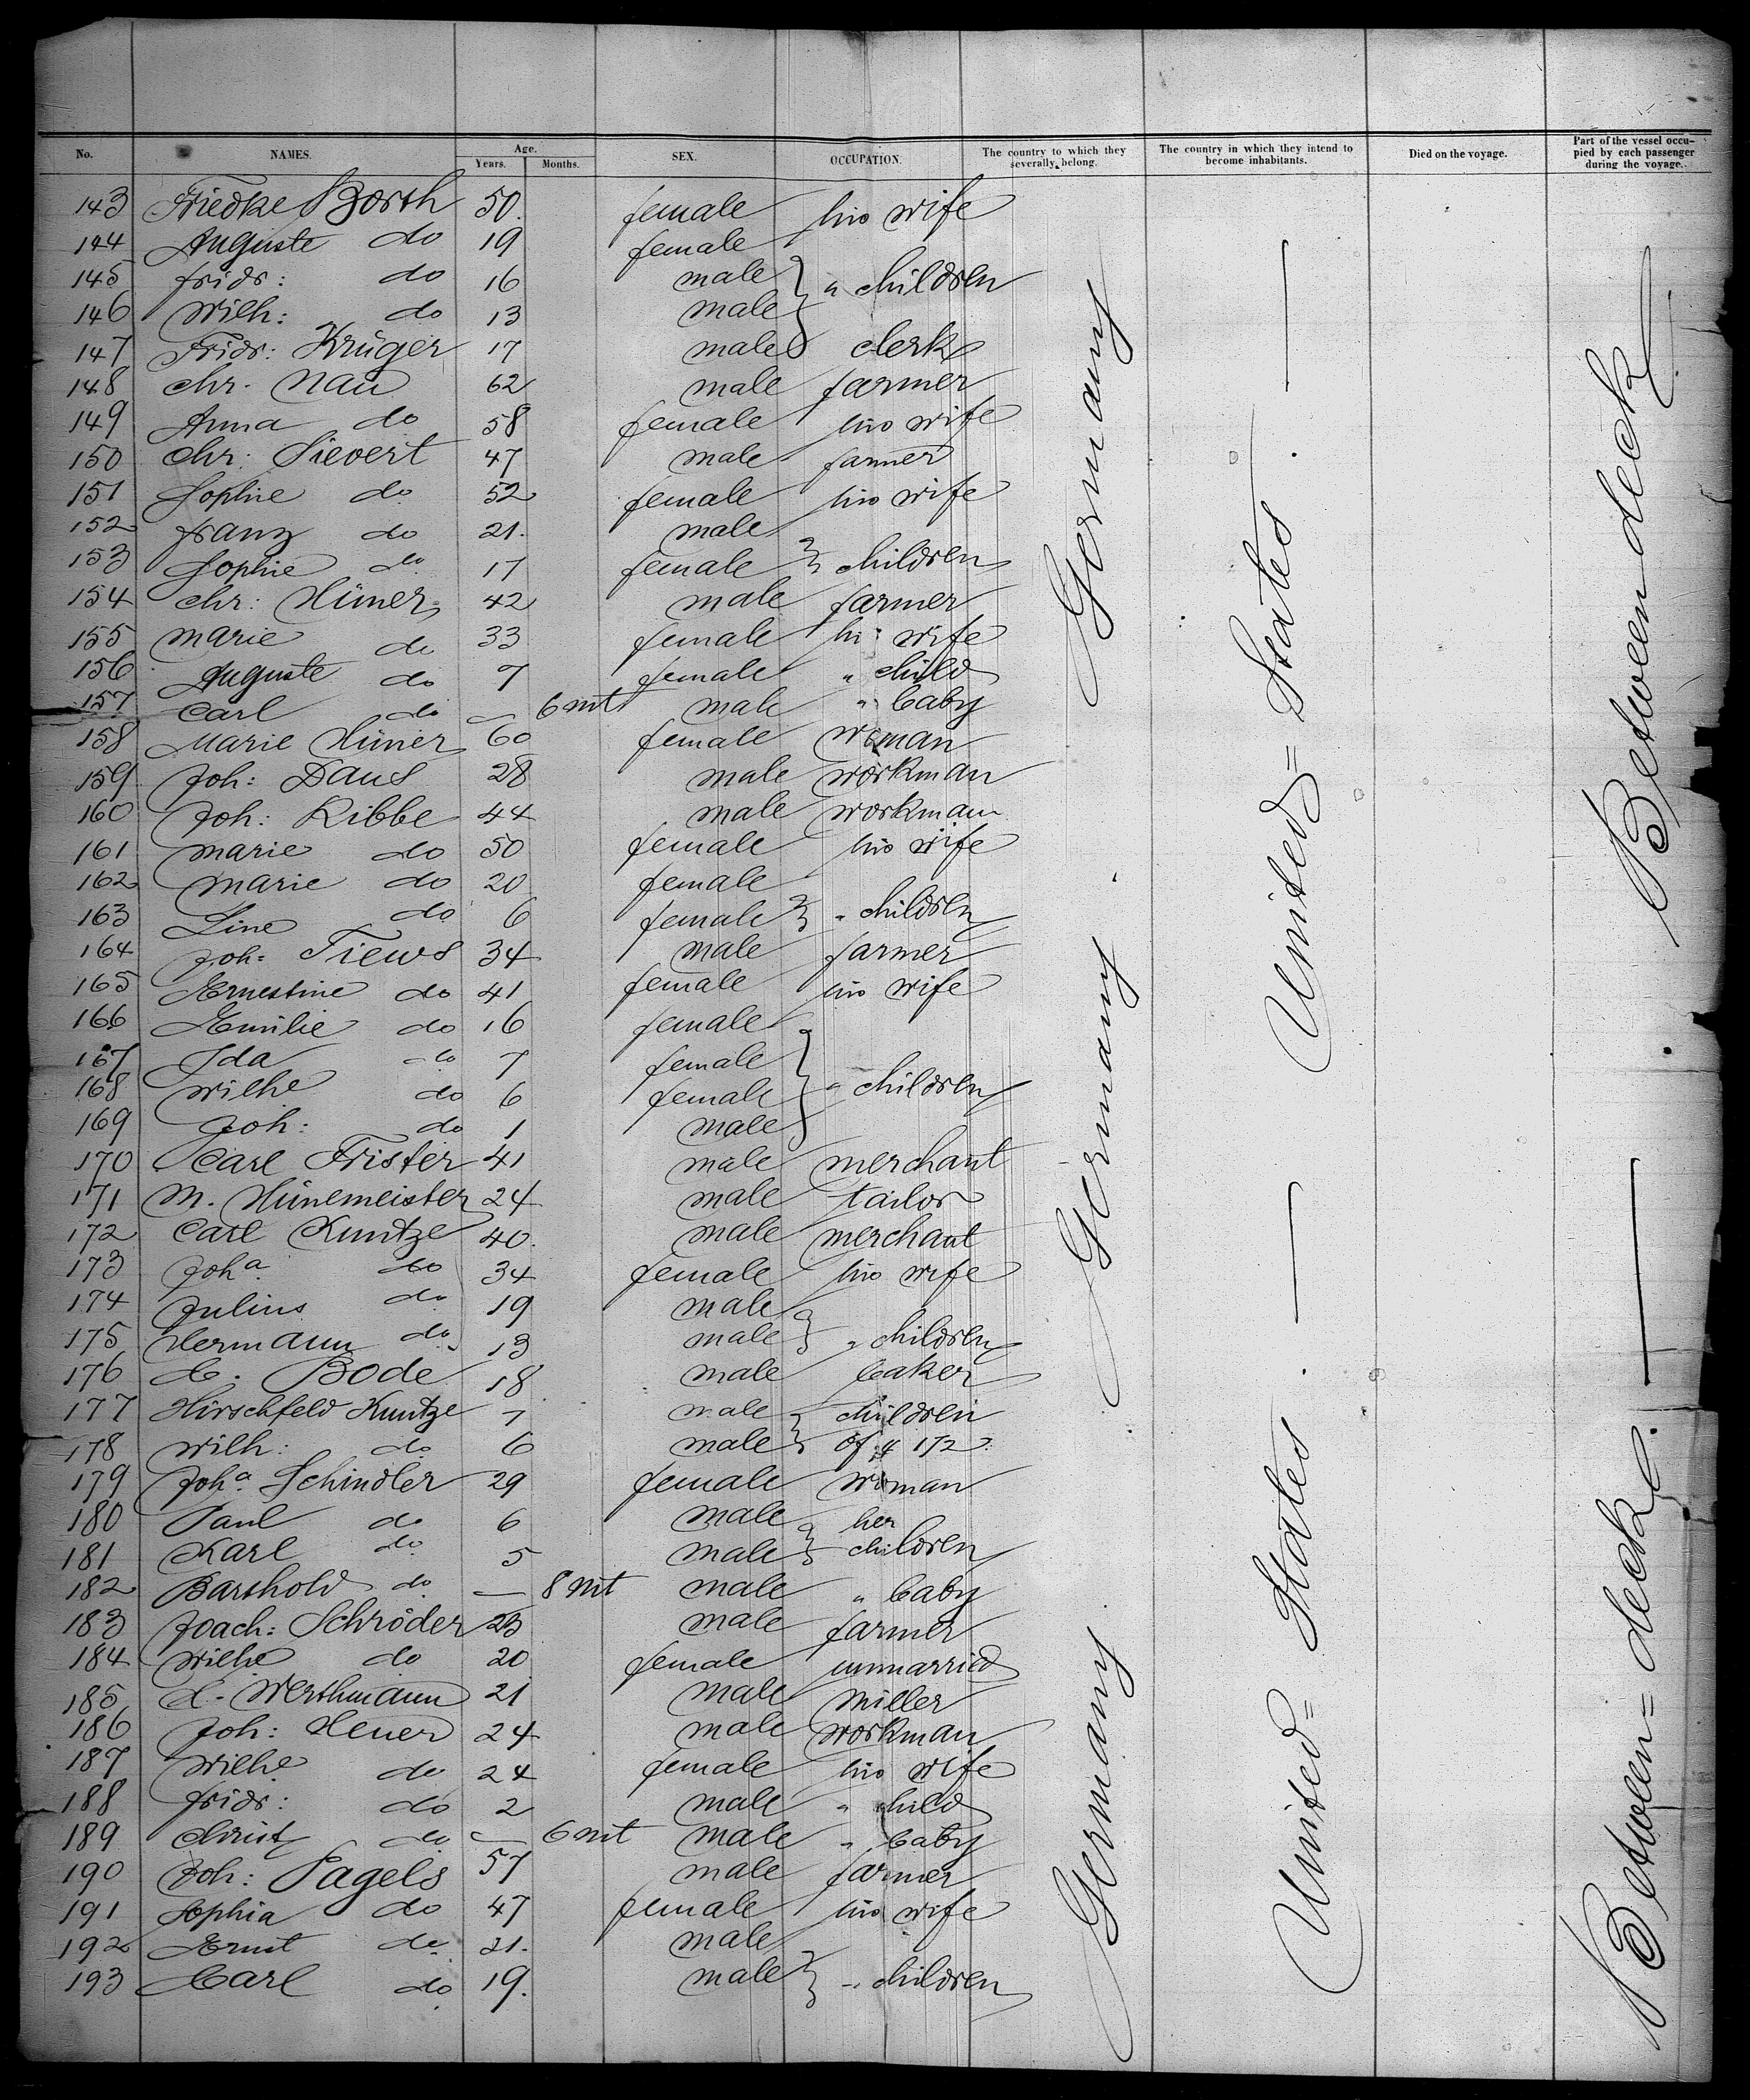 No. NAMES. Age. Years. Months. SEX. OCCUPATION. The country to which they severally belong. The country in which they intend to become inhabitants. Died on the voyage. Part of the vessel occupied by each passenger during the voyage.
143 Friedke Borth 50. female his wife
144 Auguste do 19 female
145 fridr: do 16 male " children
146 Wilh: do 13 male
147 Fridr: Krüger 17 male clerk
148 chr. Nau 62 male farmer
149 Anna do 58 female his wife
150 Chr: Sievert 47 male farmer
151 Sophie do 52 female his wife
152 franz do 21. male
153 Sophie do 17 female children
154 chr: Hüner 42 male farmer
155 marie do 33 female hi " wife
156 Auguste do 7 female " child
157 Carl do — 6 mt male " baby
158 Marie Hüner 60 female woman
159 Joh: Daus 28 male workman
160 Joh: Ribbe 44 male workman
161 marie do 50 female his wife
162 marie do 20 female
163 Line do 6 female " children
164 Joh: Tiews 34 male farmer
165 Ernestine do 41 female his wife
166 Emilie do 16 female
167 Ida do 7 female
168 Wilhe do 6 female " children
169 Joh: do 1 male
170 Carl Frister 41 male merchant
171 M. Hünemeister 24 male tailor
172 Carl Kuntze 40. male merchant
173 Joha do 34 female his wife
174 Julius do 19 male
175 Hermann do 13 male " children
176 C. Bode 18 male baker
177 Hirschfeld Kuntze 7 male children
178 Wilh: do 6 male of # 172.
179 Joha Schindler 29 female woman
180 Paul do 6 male her
181 Karl do 5 male children
182 Barthold do — 8 mt male " baby
183 Joach: Schröder 23 male farmer
184 Wilhe do 20 female unmarried
185 C. Werthmann 21 male miller
186 Joh: Heuer 24 male workman
187 Wilhe do 24 female his wife
188 fridr: do 2 male " child
189 Christ do — 6 mt male " baby
190 Joh: Pagels 57 male farmer
191 Sophia do 47 female his wife
192 Ernst do 21. male
193 Carl do 19. male " children
Germany
Germany.
Germany
United= States. —
United= States. —
Between deck
Between= deck. —